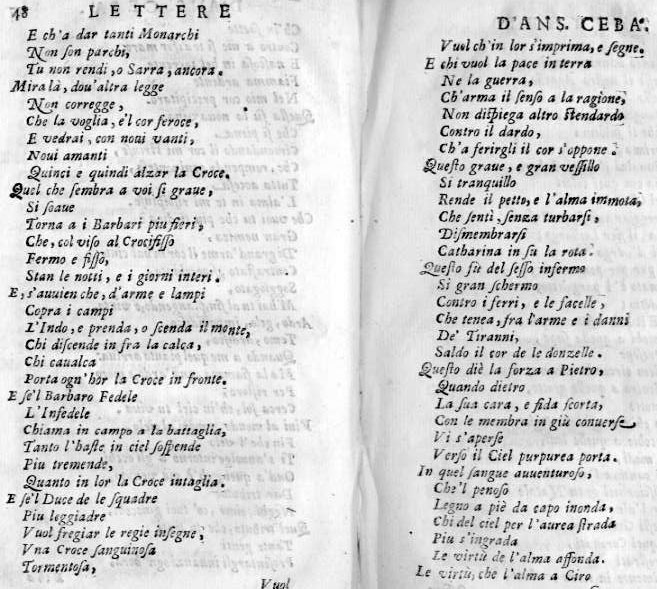 48 LETTERE
E ch'a dar tanti Monarchi
Non ſon parchi,
Tu non rendi, o Sarra, ancora.
Mira là, dou'altra legge
Non corregge,
Che la voglia, e'l cor feroce,
E vedrai, con noui vanti,
Noui amanti
Quinci e quindi alzar la Croce.
Quel che ſembra a voi ſi graue,
Si ſoaue
Torna a i Barbari piu fieri,
Che, col viſo al Crocifiſſo
Fermo e fiſſo,
Stan le notti, e i giorni interi.
E, s'auuien che, d'arme e lampi
Copra i campi
L'Indo, e prenda, o ſcenda il monte,
Chi diſcende in fra la calca,
Chi caualca
Porta ogn'hor la Croce in fronte.
E ſe'l Barbaro Fedele
L'Infedele
Chiama in campo a la battaglia,
Tanto l'haſte in ciel ſoſpende
Piu tremende,
Quanto in lor la Croce intaglia.
E ſe'l Duce de le ſquadre
Piu leggiadre
Vuol fregiar le regie inſegne,
Vna Croce ſanguinoſa
Tormentoſa,
Vuol
D'ANS. CEBA'.
Vuol ch'in lor s'imprima, e ſegne.
E chi vuol la pace in terra
Ne la guerra,
Ch'arma il ſenſo a la ragione,
Non diſpiega altro ſtendardo
Contro il dardo,
Ch'a ferirgli il cor s'oppone.
Queſto graue, e gran veſſillo
Si tranquillo
Rende il petto, e l'alma immota,
Che ſentì, ſenza turbarſi,
Diſmembrarſi
Catharina in ſu la rota.
Queſto fù del ſeſſo infermo
Si gran ſchermo
Contro i ferri, e le facelle,
Che tenea, fra l'arme e i danni
De' Tiranni,
Saldo il cor de le donzelle.
Queſto diè la forza a Pietro,
Quando dietro
La ſua cara, e fida ſcorta,
Con le membra in giù conuerſe
Vi s'aperſe
Verſo il Ciel purpurea porta.
In quel ſangue auuenturoſo,
Che'l penoſo
Legno a piè da capo inonda,
Chi del ciel per l'aurea ſtrada
Piu s'ingrada
Le virtù de l'alma affonda.
Le virtù, che l'alma a Ciro